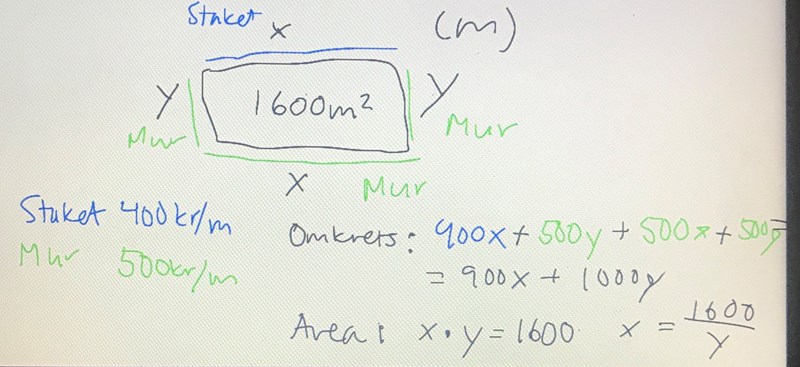 Staket
x
(m)
y
1600m²
y
Mur
Mur
x
Mur
Staket 400kr/m
Mur 500kr/m
Omkrets: 400x + 500y + 500x + 500y =
= 900x + 1000y
Area: x · y = 1600 x = 1600/y